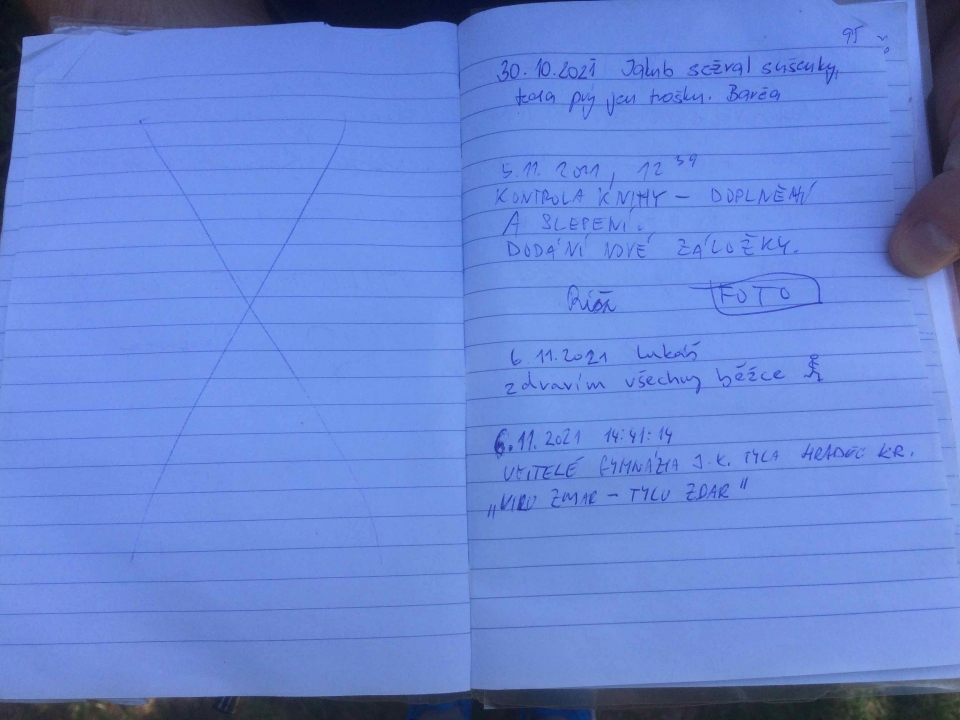 95
30.10.2021 Jakub sežral sušenky,
teda prý jen trošku. Barča
5.11. 2021, 12 39
KONTROLA KNIHY – DOPLNĚNÍ
A SLEPENÍ.
DODÁNÍ NOVÉ ZÁLOŽKY.
FOTO
6.11.2021 Lukáš
zdravím všechny běžce
6.11.2021 14:41:14
UČITELÉ GYMNÁZIA J.K. TYLA HRADEC KR.
„VIRU ZMAR – TYLU ZDAR"